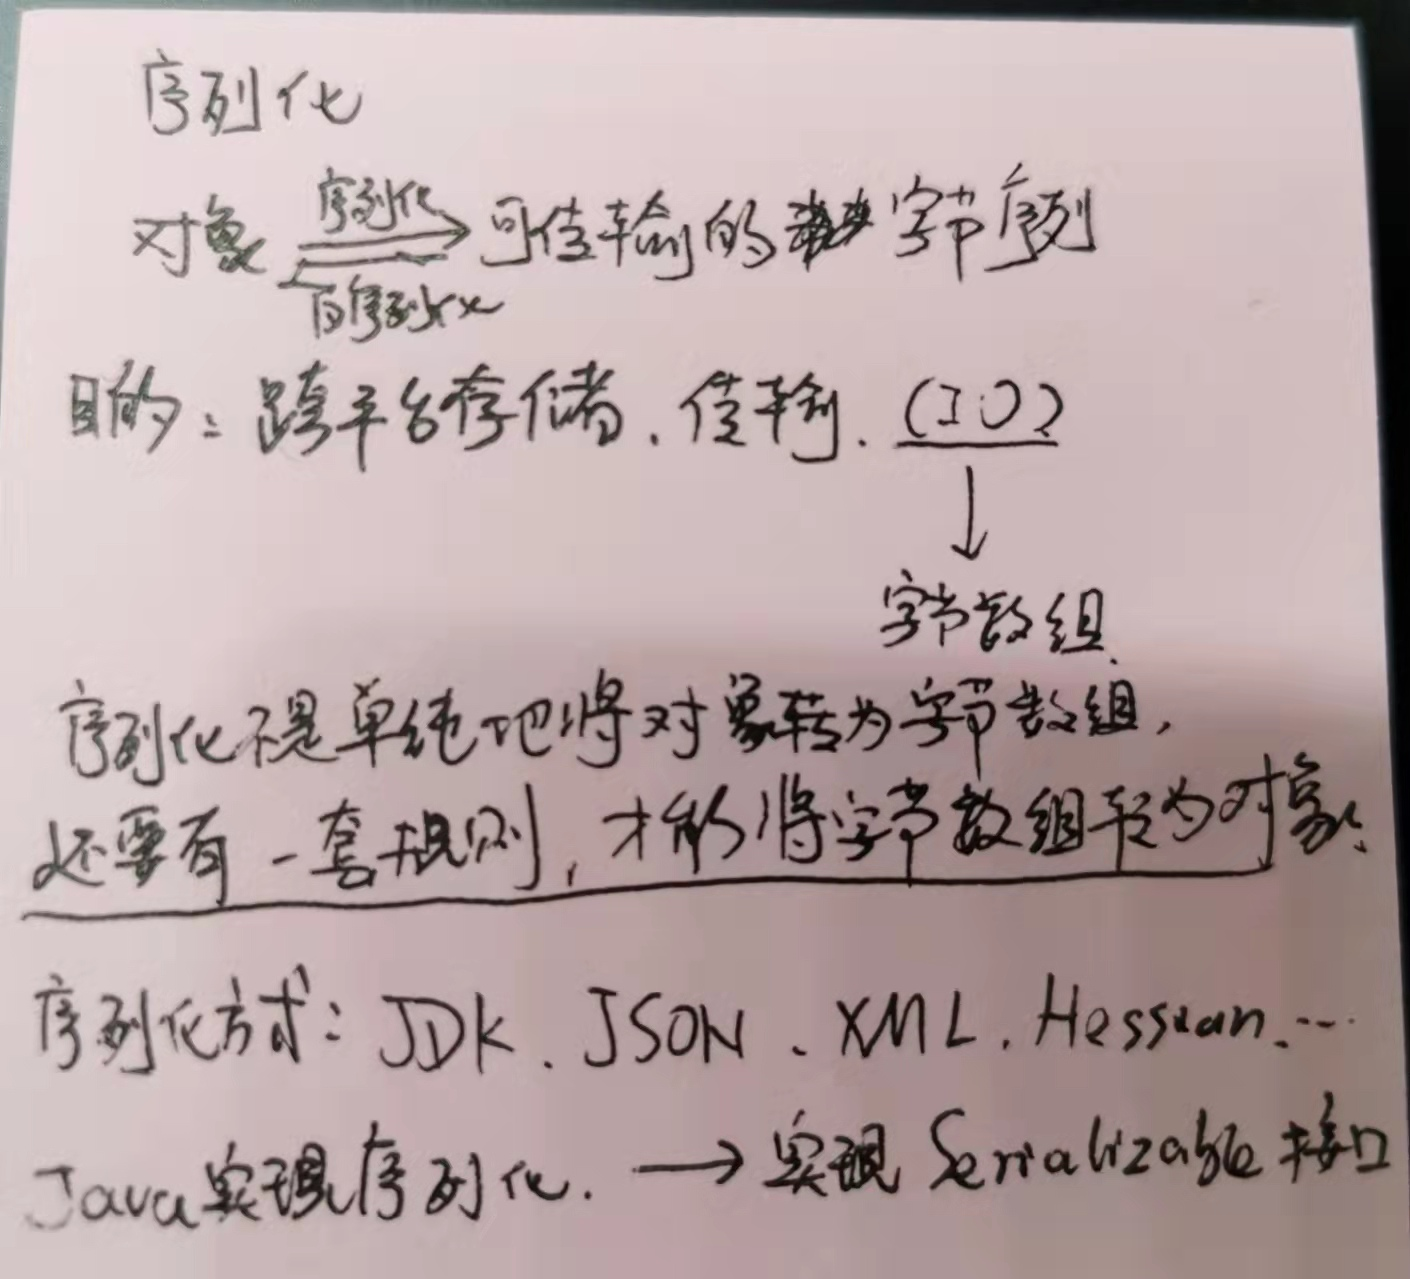 序列化
序列化
对象 可传输的 字节序列
反序列化
目的：跨平台存储、传输、(IO)
字节数组.
序列化不是单纯地将对象转为字节数组，
还要有一套规则，才能将字节数组转为对象。
序列化方式：JDK、JSON、XML、Hessian、…
Java实现序列化. → 实现 Serializable 接口